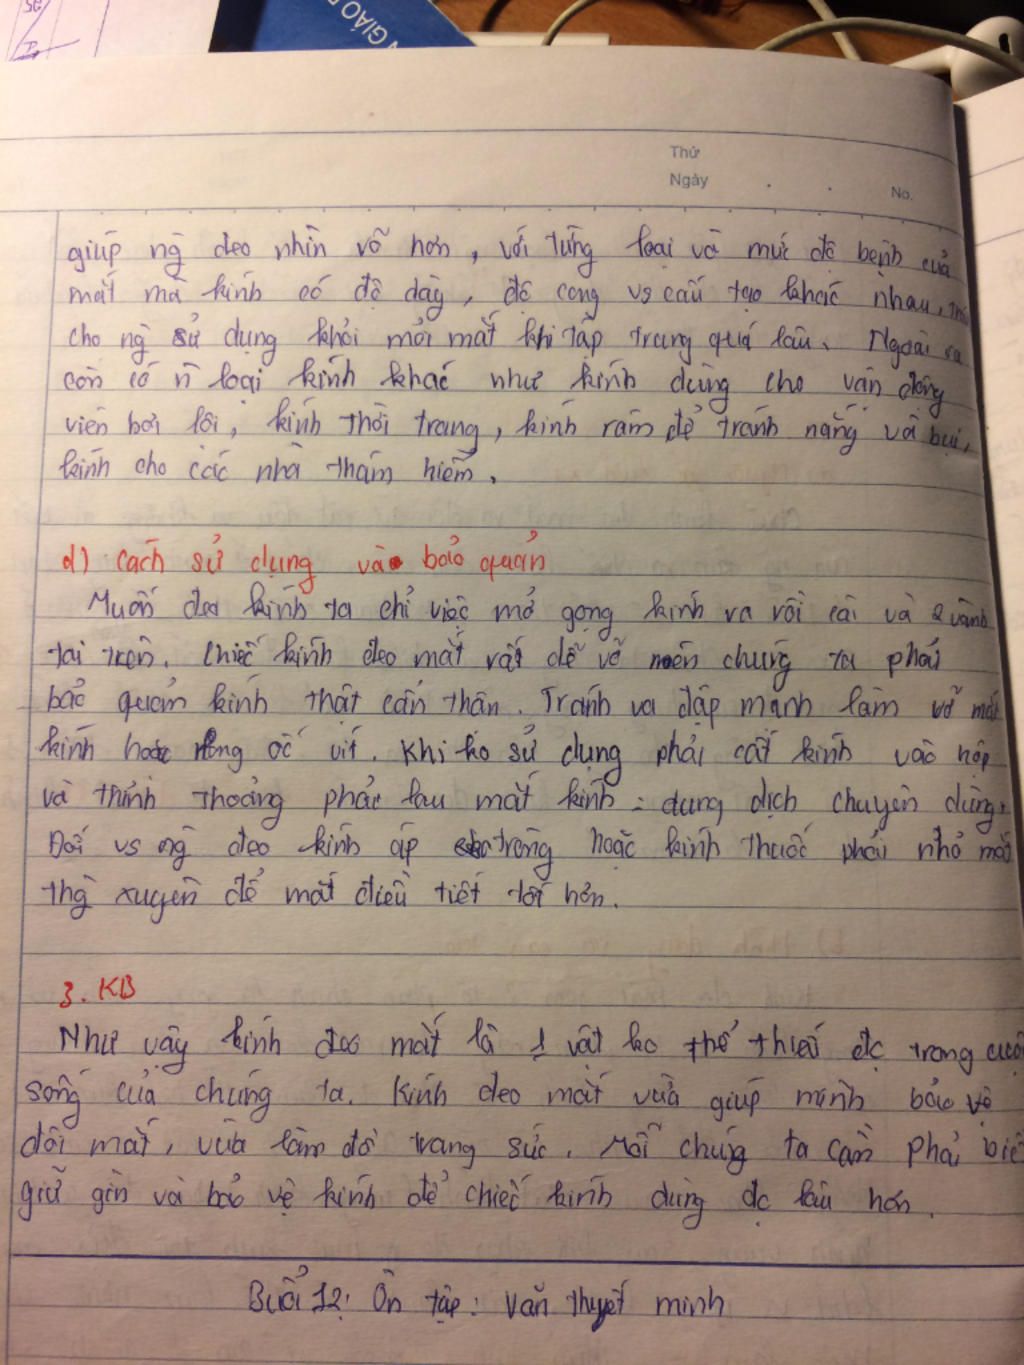 GIÁO
Thứ
Ngày . . No.
giúp ng` đeo nhìn rõ hơn, với từng loại và mức độ bệnh của
mắt mà kính có độ dày, độ cong vs cấu tạo khác nhau,
cho ng` sử dụng khỏi mỏi mắt khi tập trung quá lâu. Ngoài ra
còn có n` loại kính khác như kính dùng cho vận động
viên bơi lội, kính thời trang, kính râm để tránh nắng và bụi,
kính cho các nhà thám hiểm.
d) Cách sử dụng và bảo quản
Muốn đeo kính ta chỉ việc mở gọng kính ra rồi cài và 2 vành
tai trên. Chiếc kính đeo mắt rất dễ vỡ nên chúng ta phải
bảo quản kính thật cẩn thận. Tránh va đập mạnh làm vỡ mắt
kính hoặc ốc vít. Khi ko sử dụng phải cất kính vào hộp
và thỉnh thoảng phải lau mắt kính = dung dịch chuyên dùng.
Đối vs ng` đeo kính áp tròng hoặc kính thuốc phải nhỏ mắt
thg` xuyên để mắt điều tiết tốt hơn.
3. KB
Như vậy kính đeo mắt là 1 vật ko thể thiếu đc trong cuộc
sống của chúng ta. Kính đeo mắt vừa giúp mình bảo vệ
đôi mắt, vừa làm đồ trang sức. Mỗi chúng ta cần phải biết
giữ gìn và bảo vệ kính để chiếc kính dùng đc lâu hơn.
Buổi 12: Ôn tập: Văn thuyết minh